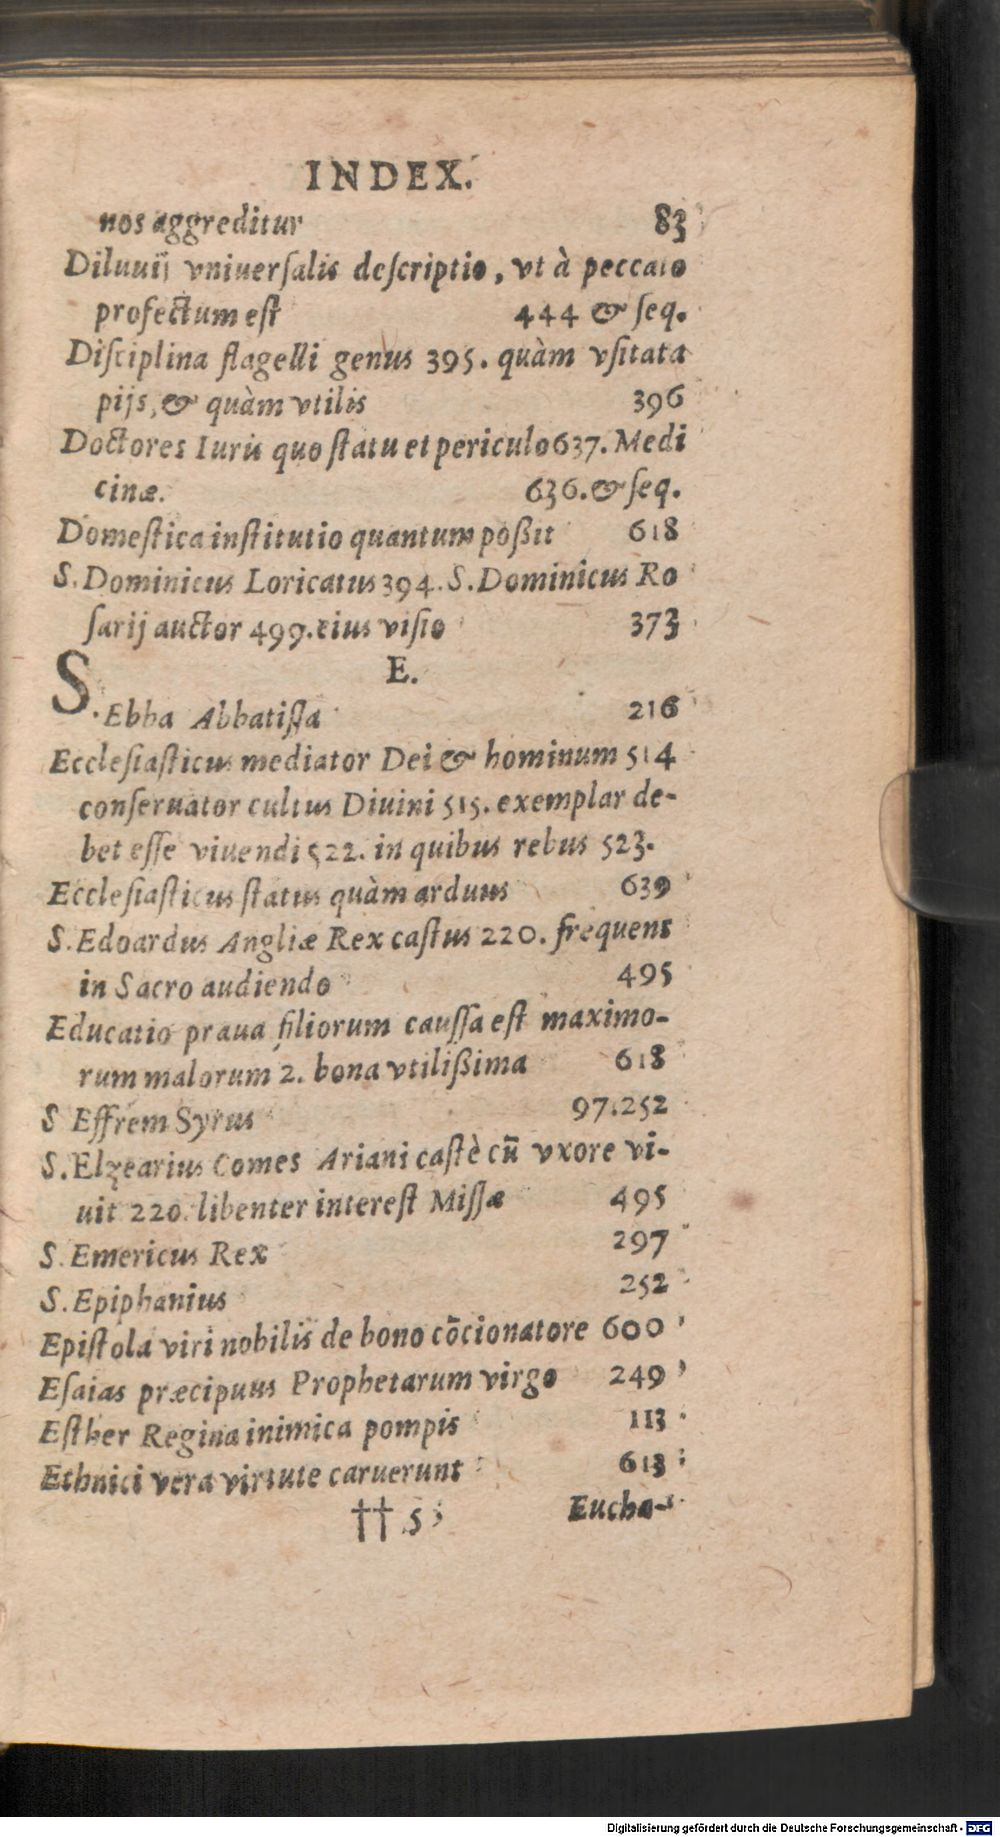 INDEX.
nos aggreditur 83
Diluuij vniuersalis descriptio, vt à peccato
profectum est 444 & seq.
Disciplina flagelli genus 395. quàm vsitata
pijs, & quàm vtilis 396
Doctores Iuris quo statu et periculo 637. Medi
cinæ. 636. & seq.
Domestica institutio quantum poßit 618
S. Dominicus Loricatus 394. S. Dominicus Ro
sarij auctor 499. eius visio 373
E.
S. Ebba Abbatissa 216
Ecclesiasticus mediator Dei & hominum 514
conseruator cultus Diuini 515. exemplar de-
bet esse viuendi 522. in quibus rebus 523.
Ecclesiasticus status quàm arduus 639
S. Edoardus Angliæ Rex castus 220. frequens
in Sacro audiendo 495
Educatio praua filiorum caussa est maximo-
rum malorum 2. bona vtilißima 618
S Effrem Syrus 97.252
S. Elzearius Comes Ariani castè cũ vxore vi-
uit 220. libenter interest Missæ 495
S. Emericus Rex 297
S. Epiphanius 252
Epistola viri nobilis de bono cōcionatore 600
Esaias præcipuus Prophetarum virgo 249
Esther Regina inimica pompis 113
Ethnici vera virtute caruerunt 613
†† 5 Eucha-
Digitalisierung gefördert durch die Deutsche Forschungsgemeinschaft - DFG